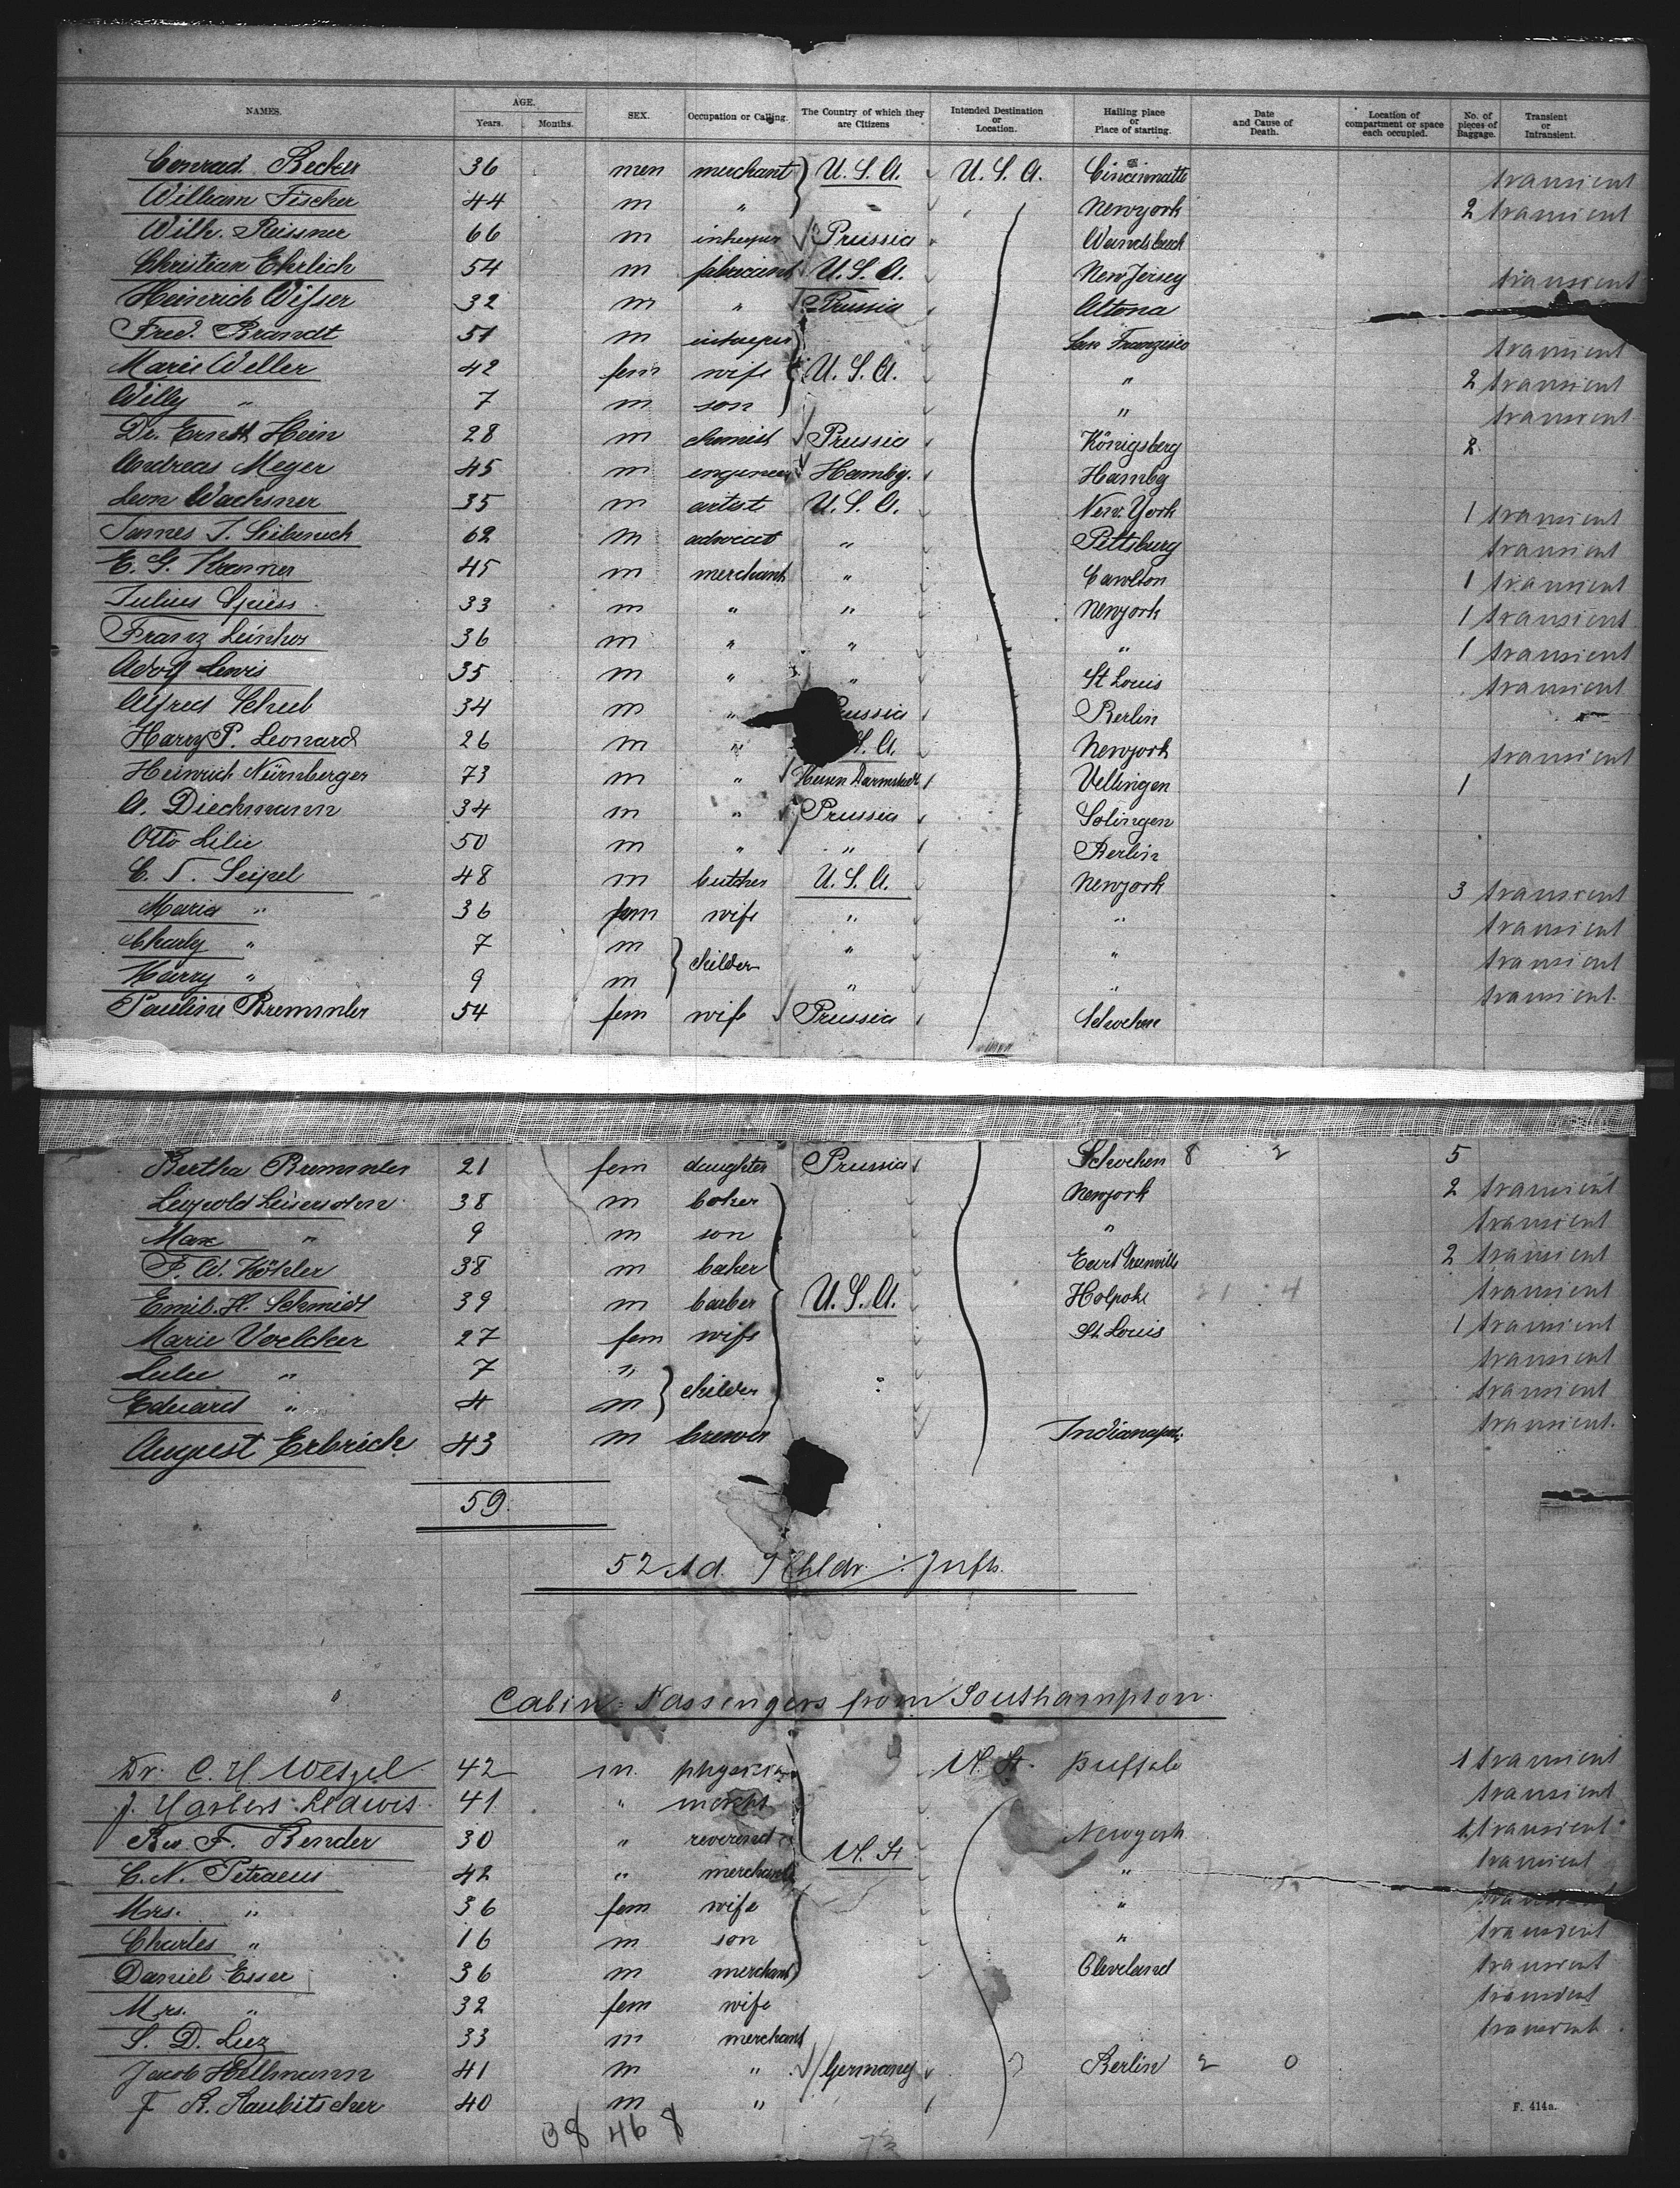 NAMES. AGE. Years. Months. SEX. Occupation or Calling. The Country of which they are Citizens Intended Destination or Location. Hailing place or Place of starting. Date and Cause of Death. Location of compartment or space each occupied. No. of pieces of Baggage. Transient or Intransient.
Conrad Becker 36 men merchant U. S. A. U. S. A. Cincinnatti transient
William Fischer 44 m " Newyork 2 transient
Wilh. Reissner 66 m Prussia Wandsbeck
Christian Ehrlich 54 m fabricant U. S. A. New Jersey transient
Heinrich 32 m " Prussia Altona
Fred. Brandt 51 m San Franzisco transient
Marie Weller 42 fem wife U. S. A. " 2 transient
Willy " 7 m son " transient
Dr. Ernst Hein 28 m chemist Prussia Königsberg 2
Andreas Meyer 45 m engineer Hambg. Hambg
Leon Wachsner 35 m artist U. S. A. New York 1 transient
James T. 62 m advocat " Pittsburg transient
E. G. 45 m merchant " 1 transient
Julius 33 m " " Newyork 1 transient
Franz 36 m " " " 1 transient
Adolf Lewis 35 m " " St Louis transient
Alfred 34 m " Berlin
Harry P. Leonard 26 m " Newyork transient
Heinrich Nürnberger 73 m " Hessen Darmstadt 1
A. Dieckmann 34 m " Prussia Solingen
Otto Lilie 50 m " " Berlin
C. T. Seipel 48 m butcher U. S. A. Newyork 3 transient
Maria " 36 fem wife " " transient
Charly " 7 m childer " " transient
Harry " 9 m " " transient
Pauline Bremmler 54 fem wife Prussia Schocken
Bertha Bremmler 21 fem daughter Prussia Schocken 8 2 5
Leopold 38 m Newyork 2 transient
Max " 9 m son " transient
F. W. Köhler 38 m baker East Greenville 2 transient
Emil. H. Schmidt 39 m barber U. S. A. 4 transient
Marie Voelcker 27 fem wife St. Louis 1 transient
Lulu " 7 " childer transient
Eduard " 4 m " transient
August Erbrich 43 m brewer transient
59.
52 Ad. 7 Chldr.
Cabin-Passengers from Southampton.
Dr. C. H. Wetzel 42 m. Buffalo 1 transient
J. 41 " transient
Rev. F. Bender 30 " reverend Newyork 1 transient
C. N. Petraeus 42 " merchant " transient
Mrs. " 36 fem wife "
Charles " 16 m son " transient
Daniel Esser 36 m merchant Cleveland transient
Mrs. " 32 fem wife transient
S. D. 33 m merchant transient
Jacob Hellmann 41 m " Germany Berlin 2 0
F. R. Raubitscher 40 m "
F. 414a.